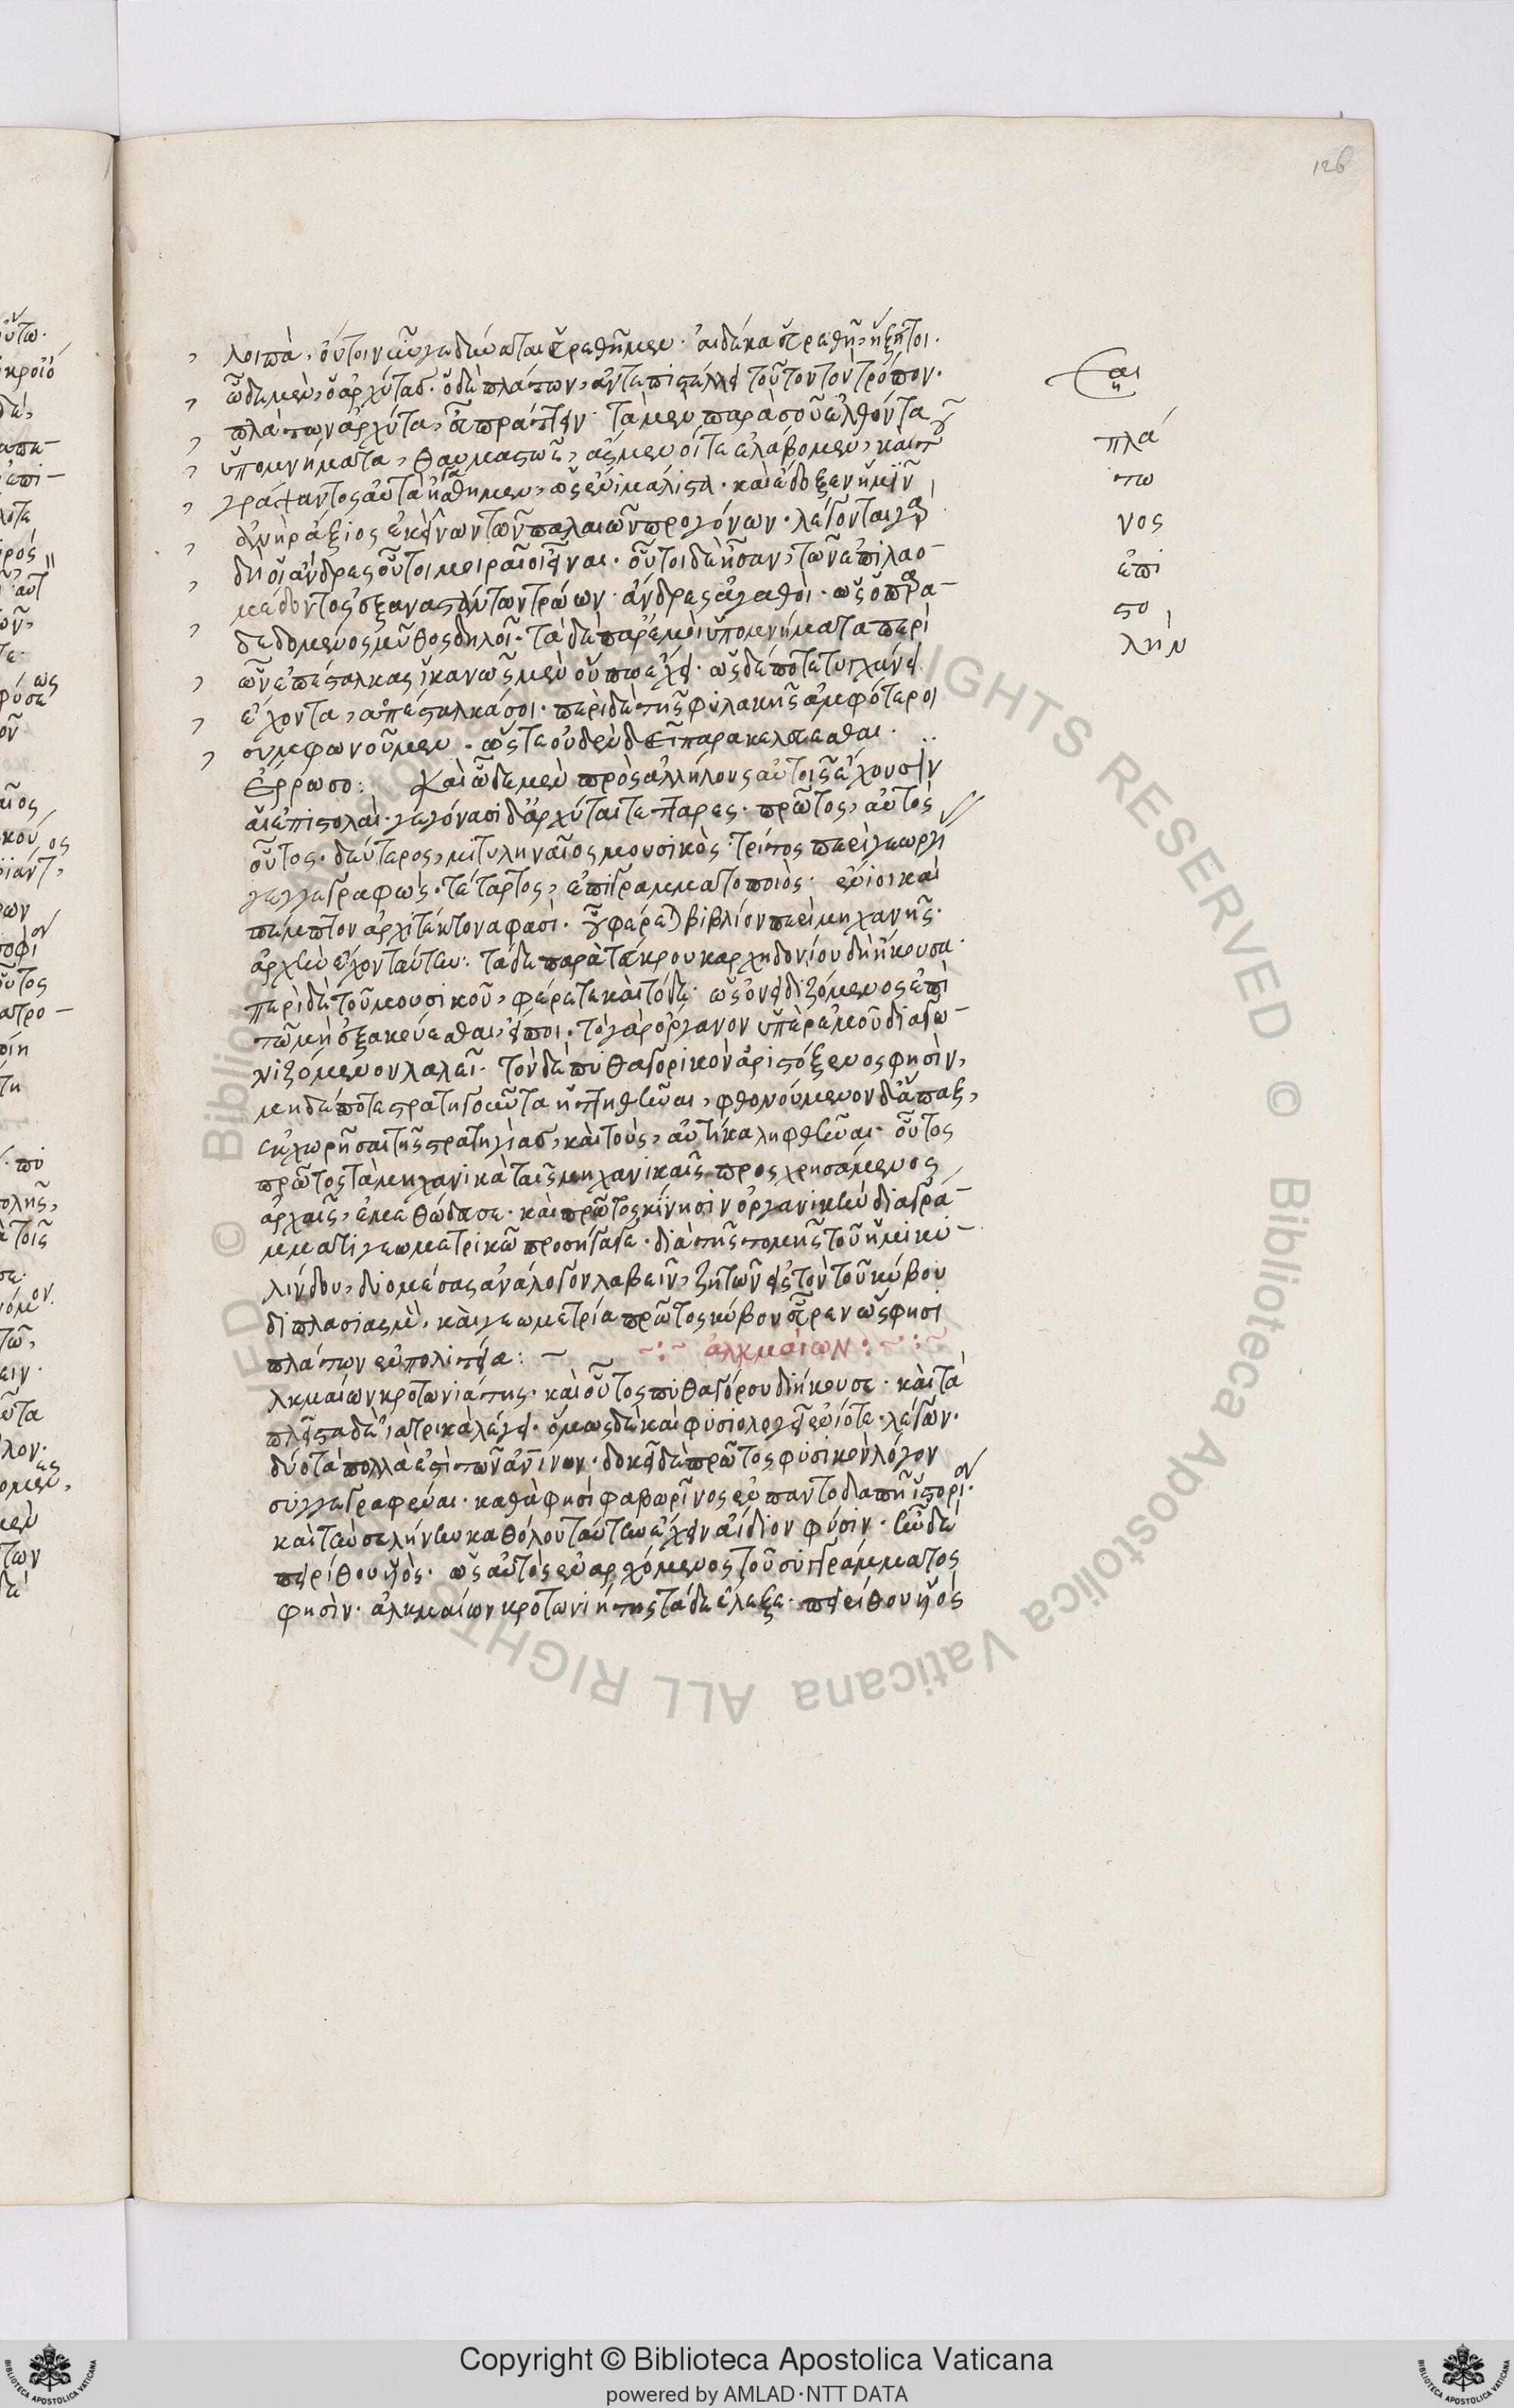 126
λοιπὰ, οὔτοι νῦν γε δύναται εὑρεθῆμεν. αἰ δέ κα εὑρεθῇ, ἥξει τοι.
ὧδε μὲν, ὁ ἀρχύτας. ὁ δὲ πλάτων, ἀντεπιστέλλει τοῦτον τὸν τρόπον.
πλάτων ἀρχύτα, εὖ πράττειν. τὰ μὲν παρὰ σοῦ ἐλθόντα
ὑπομνήματα, θαυμαστῶς, ἄσμενοί τε ἐλάβομεν, καὶ τοῦ
γράψαντος αὐτὰ ἠγάσθημεν, ὡς ἔνι μάλιστα. καὶ ἔδοξεν ἡμῖν
ἀνὴρ ἄξιος ἐκείνων τῶν παλαιῶν προγόνων. λέγονται γὰρ
δὴ οἱ ἄνδρες οὗτοι μειραῖοι εἶναι. οὗτοι δὲ ἦσαν, τῶν ἐπὶ λαο-
μέδοντος ἐξαναστάντων τρώων. ἄνδρες ἀγαθοὶ. ὡς ὁ παρα-
δεδομένος μῦθος δηλοῖ. τὰ δὲ παρ' ἐμοὶ ὑπομνήματα περὶ
ὧν ἐπέσταλκας ἱκανῶς μὲν οὔπω ἔχει. ὡς δέ ποτε τυγχάνει
ἔχοντα, ἀπέσταλκά σοι. περὶ δὲ τῆς φυλακῆς ἀμφότεροι
συμφωνοῦμεν. ὥστε οὐδὲν δεῖ παρακελεύεσθαι.
ἔρρωσο: Καὶ ὧδε μὲν πρὸς ἀλλήλους αὐτοῖς ἔχουσιν
αἱ ἐπιστολαὶ. γεγόνασι δ' ἀρχύται τέτταρες. πρῶτος, αὐτὸς
οὗτος. δεύτερος, μιτυληναῖος μουσικὸς. τρίτος περὶ γεωργί
γεγραφὼς. τέταρτος, ἐπιγραμματοποιὸς. ἔνιοι καὶ
πέμπτον ἀρχιτέκτονα φασὶ. οὗ φέρεται βιβλίον περὶ μηχανῆς.
ἀρχὴν ἔχον ταύτην: τάδε παρὰ τεύκρου καρχηδονίου διήκουσα.
περὶ δὲ τοῦ μουσικοῦ, φέρεται καὶ τόδε. ὡς ὀνειδιζόμενος ἐπὶ
τῷ μὴ ἐξακούεσθαι, εἴποι. τὸ γὰρ ὄργανον ὑπὲρ ἐμοῦ διαγω-
νιζόμενον λαλεῖ. τὸν δὲ πυθαγορικὸν ἀριστόξενος φησὶν,
μηδέποτε στρατηγοῦντα ἡττηθῆναι, φθονούμενον δ' ἅπαξ,
ἐκχωρῆσαι τῆς στρατηγίας, καὶ τοὺς, αὐτίκα ληφθῆναι. οὗτος
πρῶτος τὰ μηχανικὰ ταῖς μηχανικαῖς προσχρησάμενος
ἀρχαῖς, ἐμεθώδευσε. καὶ πρῶτος κίνησιν ὀργανικὴν διαγρά-
μματι γεωμετρικῶ προσήγαγε. διὰ τῆς τομῆς τοῦ ἡμικυ-
λίνδου, δύο μέσας ἀνάλογον λαβεῖν, ζητῶν εἰς τὸν τοῦ κύβου
διπλασιασμὸν. καὶ γεωμετρία πρῶτος κύβον εὗρεν ὥς φησι
πλάτων ἐν πολιτεία: ~ ~:~ ἀλκμαίων: ~:~
λκμαίων κροτωνιάτης. καὶ οὗτος πυθαγόρου διήκουσε. καὶ τὰ
πλεῖστα δὲ ἰατρικὰ λέγει. ὅμως δὲ καὶ φυσιολογεῖ ἐνίοτε. λέγων.
δύο τὰ πολλὰ ἐστὶ τῶν ἀνίνων. δοκεῖ δὲ πρῶτος φυσικὸν λόγον
συγγεγραφέναι. καθὰ φησὶ φαβωρῖνος ἐν παντοδαπῆ ἱστορι.
καὶ τὴν σελήνην καθόλου ταύτην ἔχειν ἀίδιον φύσιν. ἦν δὲ
πειρίθου υἱὸς. ὡς αὐτὸς ἐναρχόμενος τοῦ συγγράμματος
φησὶν. ἀλκμαίων κροτωνιήτης τάδε ἔλεξε. πειρίθου υἱὸς
πλά
τω
νος
ἐπι
στο
λήν
Copyright © Biblioteca Apostolica Vaticana
powered by AMLAD·NTT DATA